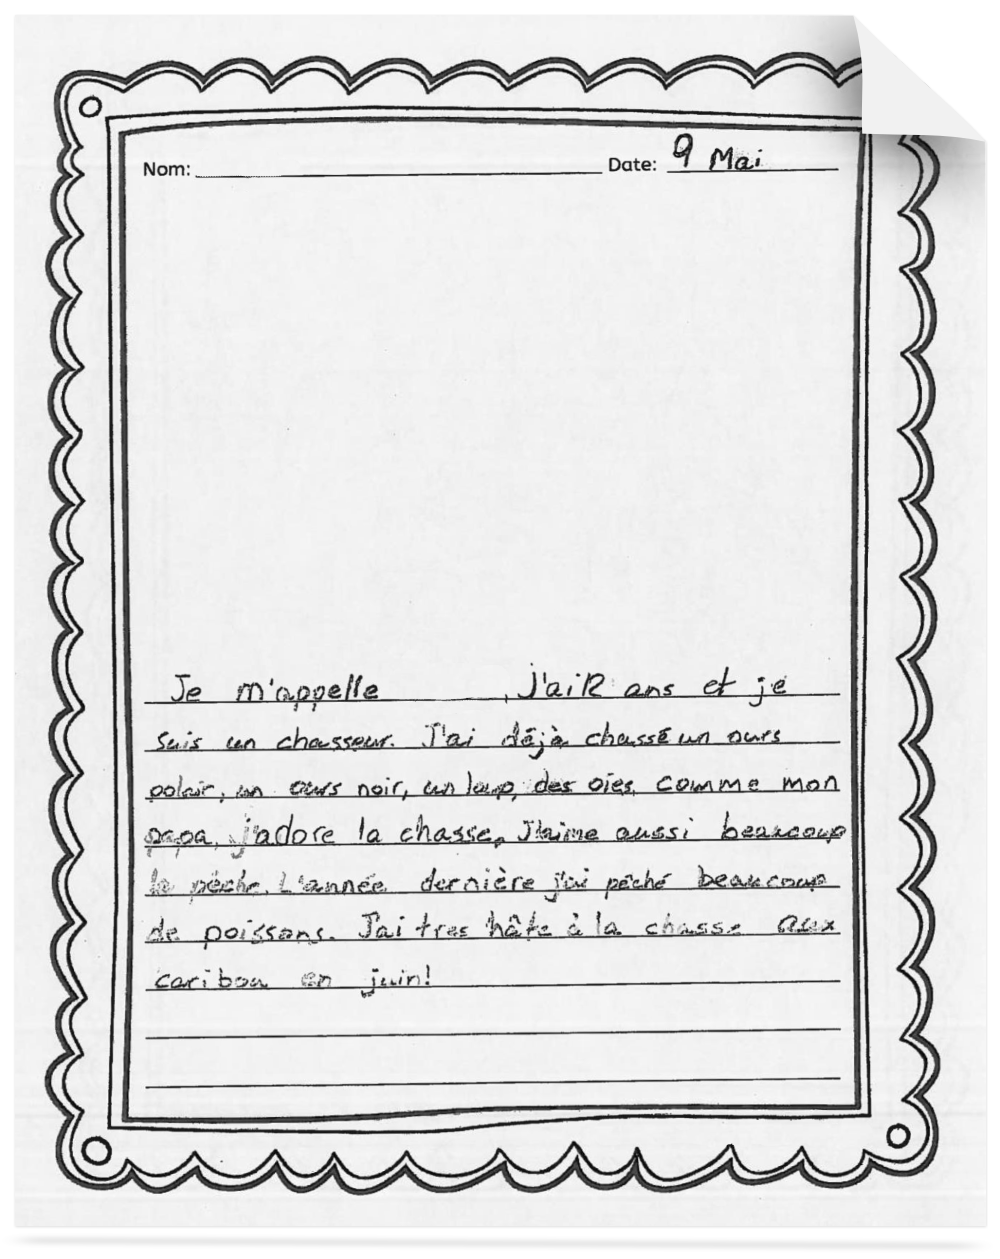 Nom: Date: 9 Mai
Je m'appelle , J'ai 12 ans et je
suis un chasseur. J'ai déjà chassé un ours
polair, un ours noir, un loup, des oies, comme mon
papa, j'adore la chasse, J'aime aussi beaucoup
la pêche. L'année dernière j'ai pêché beaucoup
de poissons. J'ai tres hâte à la chasse aux
caribou en juin!